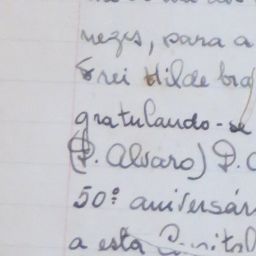 nezes, para a
Frei Hildebra
gratulando-se
(P. Alvaro) P.
50º aniversár
a esta